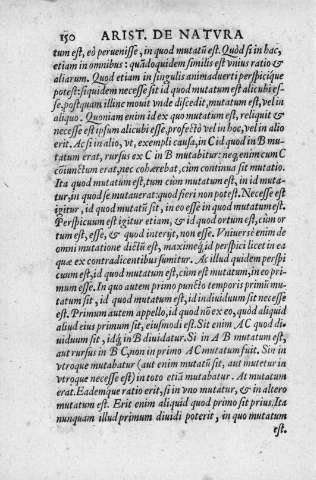 150 ARIST. DE NATVRA
tum est, eò peruenisse, in quod mutatū est. Quòd si in hac,
etiam in omnibus: quādoquidem similis est vnius ratio &
aliarum. Quod etiam in singulis animaduerti perspicique
potest: siquidem necesse sit id quod mutatum est alicubi es-
se, postquam illinc mouit vnde discedit, mutatum est, vel in
aliquo. Quoniam enim id ex quo mutatum est, reliquit &
necesse est ipsum alicubi esse, profectò vel in hoc, vel in alio
erit. Ac si in alio, vt, exempli causa, in C id quod in B mu-
tatum erat, rursus ex C in B mutabitur: neq; enim cum C
cōiunctum erat, nec cohærebat, cùm continua sit mutatio.
Ita quod mutatum est, tum cùm mutatum est, in id muta-
tur, in quod se mutauerat: quod fieri non potest. Necesse est
igitur, id quod mutatū sit, in eo esse in quod mutatum est.
Perspicuum est igitur etiam, & id quod ortum est, cùm or
tum est, esse, & quod interijt, non esse. Vniuersè enim de
omni mutatione dictū est, maximeq́; id perspici licet in ea
quæ ex contradicentibus sumitur. Ac illud quidem perspi
cuum est, id quod mutatum est, cùm est mutatum, in eo pri-
mum esse. In quo autem primo puncto temporis primū mu-
tatum sit, id quod mutatum est, id indiuiduum sit necesse
est. Primum autem appello, id quod nō ex eo, quòd aliquid
aliud eius primum sit, eiusmodi est. Sit enim AC quod di-
uiduum sit, idq́; in B diuidatur. Si in A B mutatum est,
aut rursus in B C, non in primo AC mutatum fuit. Sin in
vtroque mutabatur (aut enim mutatū sit, aut mutetur in
vtroque necesse est) in toto etiā mutabatur. At mutatum
erat. Eademque ratio erit, si in vno mutatur, & in altero
mutatum est. Erit enim aliquid quod primo sit prius. Ita
nunquam illud primum diuidi poterit, in quo mutatum
est.